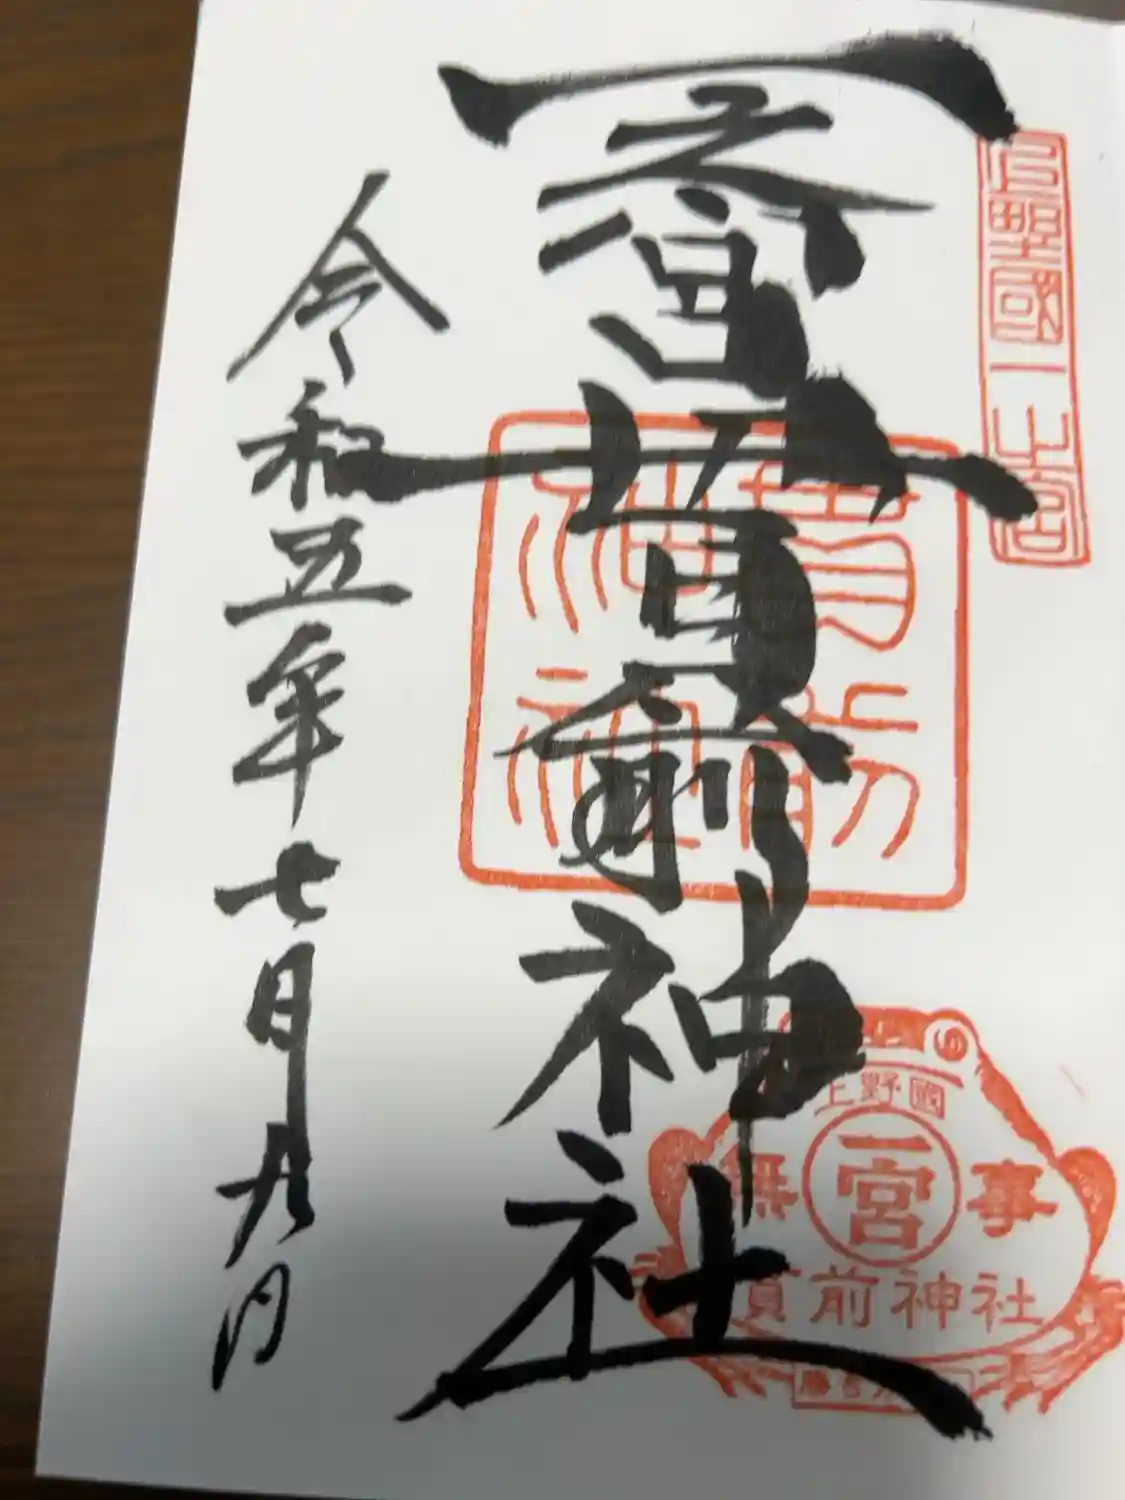 上野國一之宮
一之宮貫前神社
貫前
神社
令和五年七月九日
上野國
無 一宮 事
貫前神社